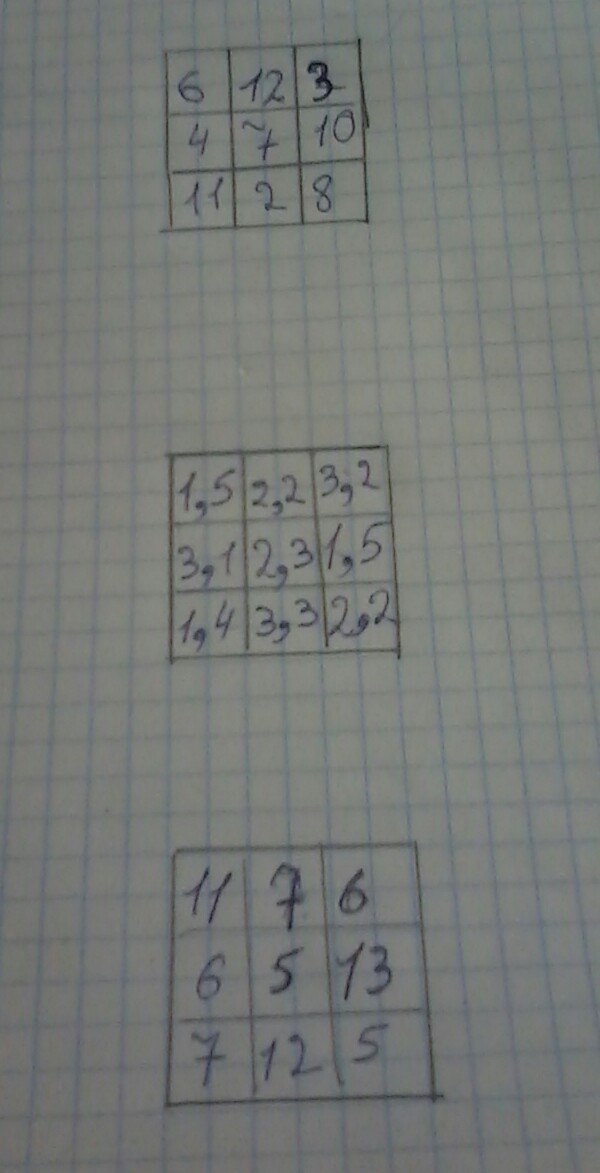 6 12 3
4 7 10
11 2 8
1,5 2,2 3,2
3,1 2,3 1,5
1,4 3,3 2,2
11 7 6
6 5 13
7 12 5